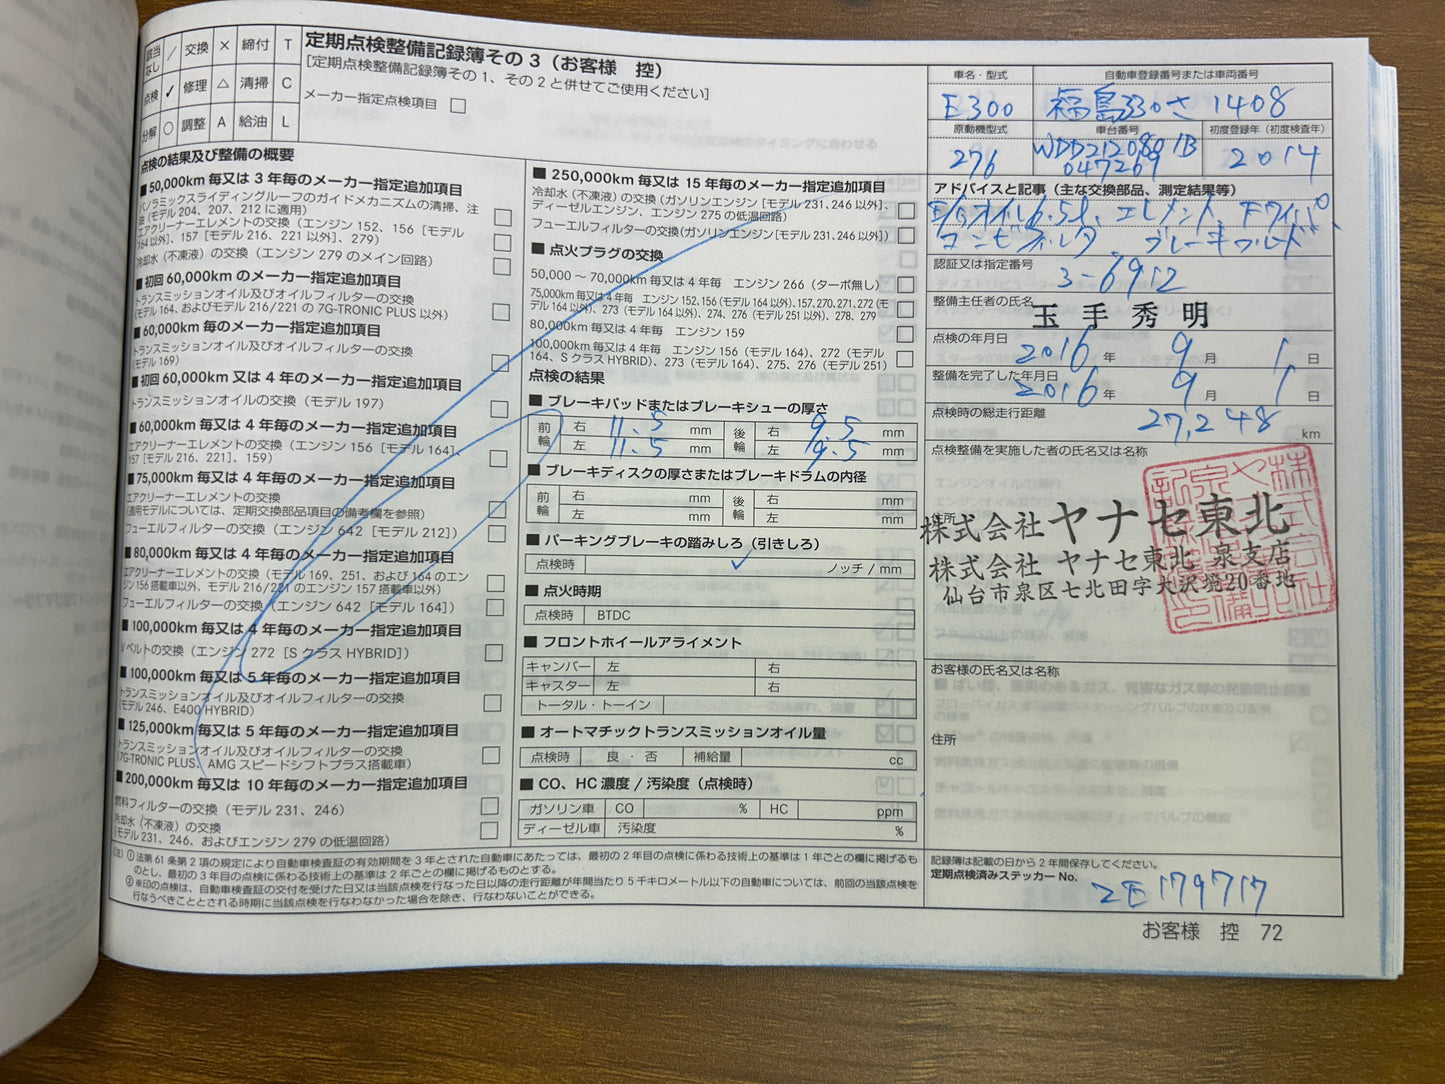 該当なし / 交換 × 締付 T
点検 ✓ 修理 △ 清掃 C
分解 ○ 調整 A 給油 L
定期点検整備記録簿その 3（お客様 控）
[定期点検整備記録簿その 1、その 2 と併せてご使用ください]
メーカー指定点検項目 □
点検の結果及び整備の概要
■ 50,000km 毎又は 3 年毎のメーカー指定追加項目
パノラミックスライディングルーフのガイドメカニズムの清掃、注
油（モデル 204、207、212 に適用）
エアクリーナーエレメントの交換（エンジン 152、156［モデル
164 以外］、157［モデル 216、221 以外］、279）
冷却水（不凍液）の交換（エンジン 279 のメイン回路）
■ 初回 60,000km のメーカー指定追加項目
トランスミッションオイル及びオイルフィルターの交換
（モデル 164、およびモデル 216/221 の 7G-TRONIC PLUS 以外）
■ 60,000km 毎のメーカー指定追加項目
トランスミッションオイル及びオイルフィルターの交換
（モデル 169）
■ 初回 60,000km 又は 4 年のメーカー指定追加項目
トランスミッションオイルの交換（モデル 197）
■ 60,000km 毎又は 4 年毎のメーカー指定追加項目
エアクリーナーエレメントの交換（エンジン 156［モデル 164］、
157［モデル 216、221］、159）
■ 75,000km 毎又は 4 年毎のメーカー指定追加項目
エアクリーナーエレメントの交換
（適用モデルについては、定期交換部品項目の備考欄を参照）
フューエルフィルターの交換（エンジン 642［モデル 212］）
■ 80,000km 毎又は 4 年毎のメーカー指定追加項目
エアクリーナーエレメントの交換（モデル 169、251、および 164 のエン
ジン 156 搭載車以外、モデル 216/221 のエンジン 157 搭載車以外）
フューエルフィルターの交換（エンジン 642［モデル 164］）
■ 100,000km 毎又は 4 年毎のメーカー指定追加項目
V ベルトの交換（エンジン 272［S クラス HYBRID］）
■ 100,000km 毎又は 5 年毎のメーカー指定追加項目
トランスミッションオイル及びオイルフィルターの交換
（モデル 246、E400 HYBRID）
■ 125,000km 毎又は 5 年毎のメーカー指定追加項目
トランスミッションオイル及びオイルフィルターの交換
（7G-TRONIC PLUS、AMG スピードシフトプラス搭載車）
■ 200,000km 毎又は 10 年毎のメーカー指定追加項目
燃料フィルターの交換（モデル 231、246）
冷却水（不凍液）の交換
（モデル 231、246、およびエンジン 279 の低温回路）
■ 250,000km 毎又は 15 年毎のメーカー指定追加項目
冷却水（不凍液）の交換（ガソリンエンジン［モデル 231、246 以外］、
ディーゼルエンジン、エンジン 275 の低温回路）
フューエルフィルターの交換（ガソリンエンジン［モデル 231、246 以外］）
■ 点火プラグの交換
50,000 ～ 70,000km 毎又は 4 年毎 エンジン 266（ターボ無し）
75,000km 毎又は 4 年毎 エンジン 152、156（モデル 164 以外）、157、270、271、272（モ
デル 164 以外）、273（モデル 164 以外）、274、276（モデル 251 以外）、278、279
80,000km 毎又は 4 年毎 エンジン 159
100,000km 毎又は 4 年毎 エンジン 156（モデル 164）、272（モデル
164、S クラス HYBRID）、273（モデル 164）、275、276（モデル 251）
点検の結果
■ ブレーキパッドまたはブレーキシューの厚さ
前輪 右 11.5 mm 後輪 右 9.5 mm
左 11.5 mm 左 9.5 mm
■ ブレーキディスクの厚さまたはブレーキドラムの内径
前輪 右 mm 後輪 右 mm
左 mm 左 mm
■ パーキングブレーキの踏みしろ（引きしろ）
点検時 ✓ ノッチ / mm
■ 点火時期
点検時 BTDC
■ フロントホイールアライメント
キャンバー 左 右
キャスター 左 右
トータル・トーイン
■ オートマチックトランスミッションオイル量
点検時 良 ・ 否 補給量 cc
■ CO、HC 濃度 / 汚染度（点検時）
ガソリン車 CO % HC ppm
ディーゼル車 汚染度 %
車名・型式 自動車登録番号または車両番号
E300 福島330さ1408
原動機型式 車台番号 初度登録年（初度検査年）
276 WDD2120801B047269 2014
アドバイスと記事（主な交換部品、測定結果等）
E/Gオイル6.5ℓ、エレメント、Fワイパ、
コンビフィルタ、ブレーキフルード
認証又は指定番号
3-6912
整備主任者の氏名
玉手秀明
点検の年月日
2016 年 9 月 1 日
整備を完了した年月日
2016 年 9 月 1 日
点検時の総走行距離
27,248 km
点検整備を実施した者の氏名又は名称
住所
株式会社 ヤナセ東北
株式会社 ヤナセ東北 泉支店
仙台市泉区七北田字大沢境20番地
お客様の氏名又は名称
住所
（注）① 法第 61 条第 2 項の規定により自動車検査証の有効期間を 3 年とされた自動車にあたっては、最初の 2 年目の点検に係わる技術上の基準は 1 年ごとの欄に掲げるも
のとし、最初の 3 年目の点検に係わる技術上の基準は 2 年ごとの欄に掲げるものとする。
② ※印の点検は、自動車検査証の交付を受けた日又は当該点検を行なった日以降の走行距離が年間当たり 5 千キロメートル以下の自動車については、前回の当該点検を
行なうべきこととされる時期に当該点検を行なわなかった場合を除き、行なわないことができる。
記録簿は記載の日から 2 年間保存してください。
定期点検済みステッカー No.
2E179717
お客様 控 72